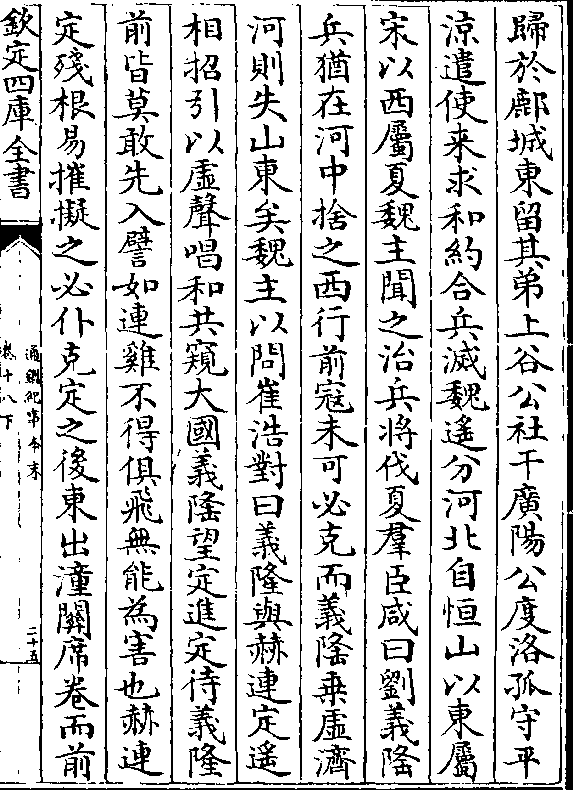 歸於鄜城東留其弟上谷公社干廣陽公度洛孤守平
涼遣使来求和約合兵滅魏遙分河北自恒山以東屬
宋以西屬夏魏主聞之治兵將伐夏羣臣咸曰劉義隆
兵猶在河中捨之西行前寇未可必克而義隆乗虛濟
河則失山東矣魏主以問崔浩對曰義隆與赫連定遙
相招引以虛聲唱和共窺大國義隆望定進定待義隆
前皆莫敢先入譬如連雞不得俱飛無能為害也赫連
定殘根易摧擬之必仆克定之後東出潼關席卷而前
欽定四庫全書
通鑑紀事本末
卷十八下
二十五